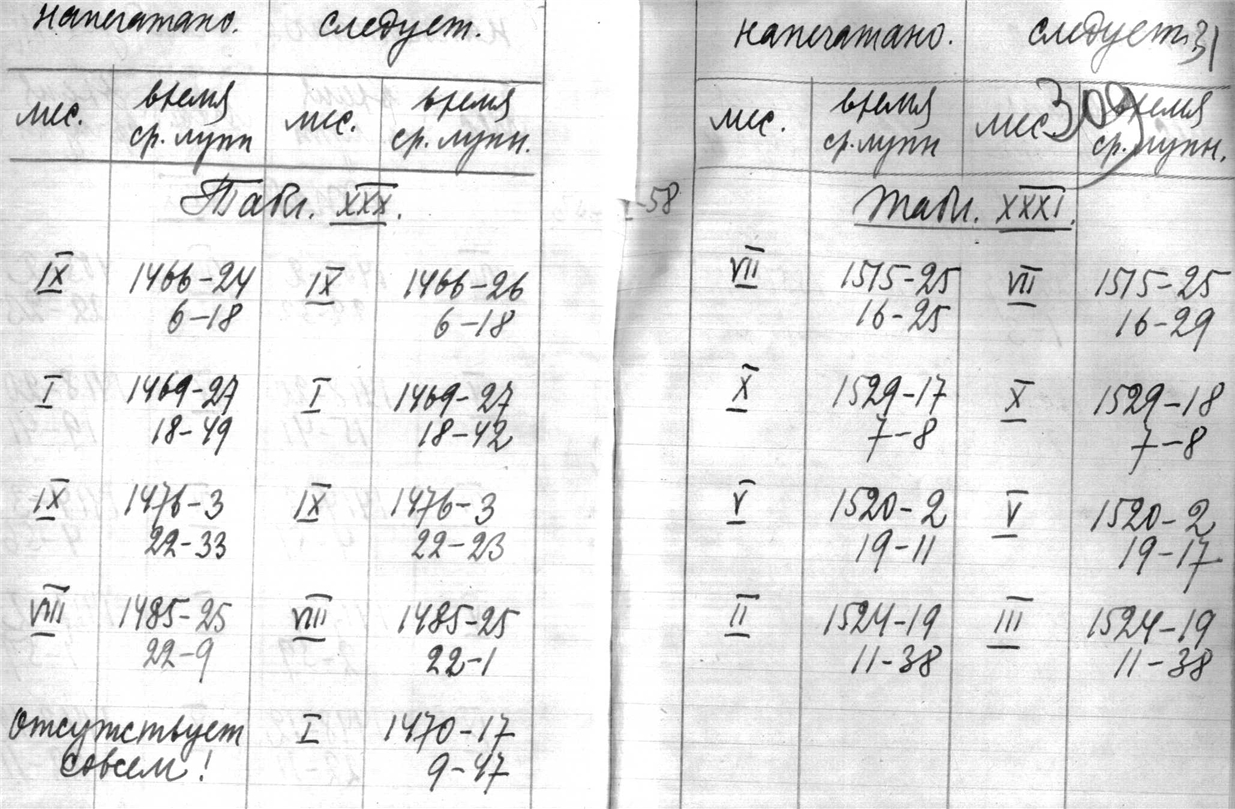 напечатано. следует.
мес. время ср. лунн мес. время ср. лунн.
Табл. XXX.
IX 1466-24 IX 1466-26
6-18 6-18
I 1469-27 I 1469-27
18-49 18-42
IX 1476-3 IX 1476-3
22-33 22-23
VIII 1485-25 VIII 1485-25
22-9 22-1
отсутствует I 1470-17
совсем! 9-47
-58
напечатано. следует. 31
309
мес. время ср. лунн мес. время ср. лунн.
Табл. XXXI.
VII 1515-25 VII 1515-25
16-25 16-29
X 1529-17 X 1529-18
7-8 7-8
V 1520-2 V 1520-2
19-11 19-17
II 1524-19 III 1524-19
11-38 11-38